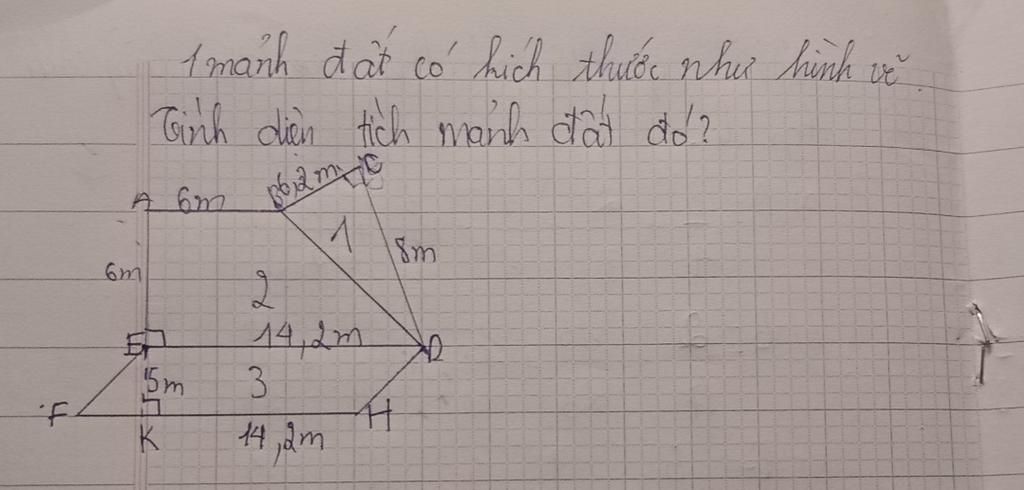 1 mảnh đất có kích thước như hình vẽ.
Tính diện tích mảnh đất đó?
A 6m B 6,2m C
1
8m
6m
2
E 14,2m D
5m 3
F H
K 14,2m